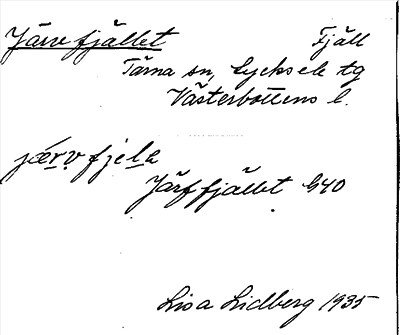 Järvfjället Fjäll
Tärna sn, Lycksele tg
Västerbottens l.
pærvfjela
Järffjället G40
Lisa Lidberg 1935